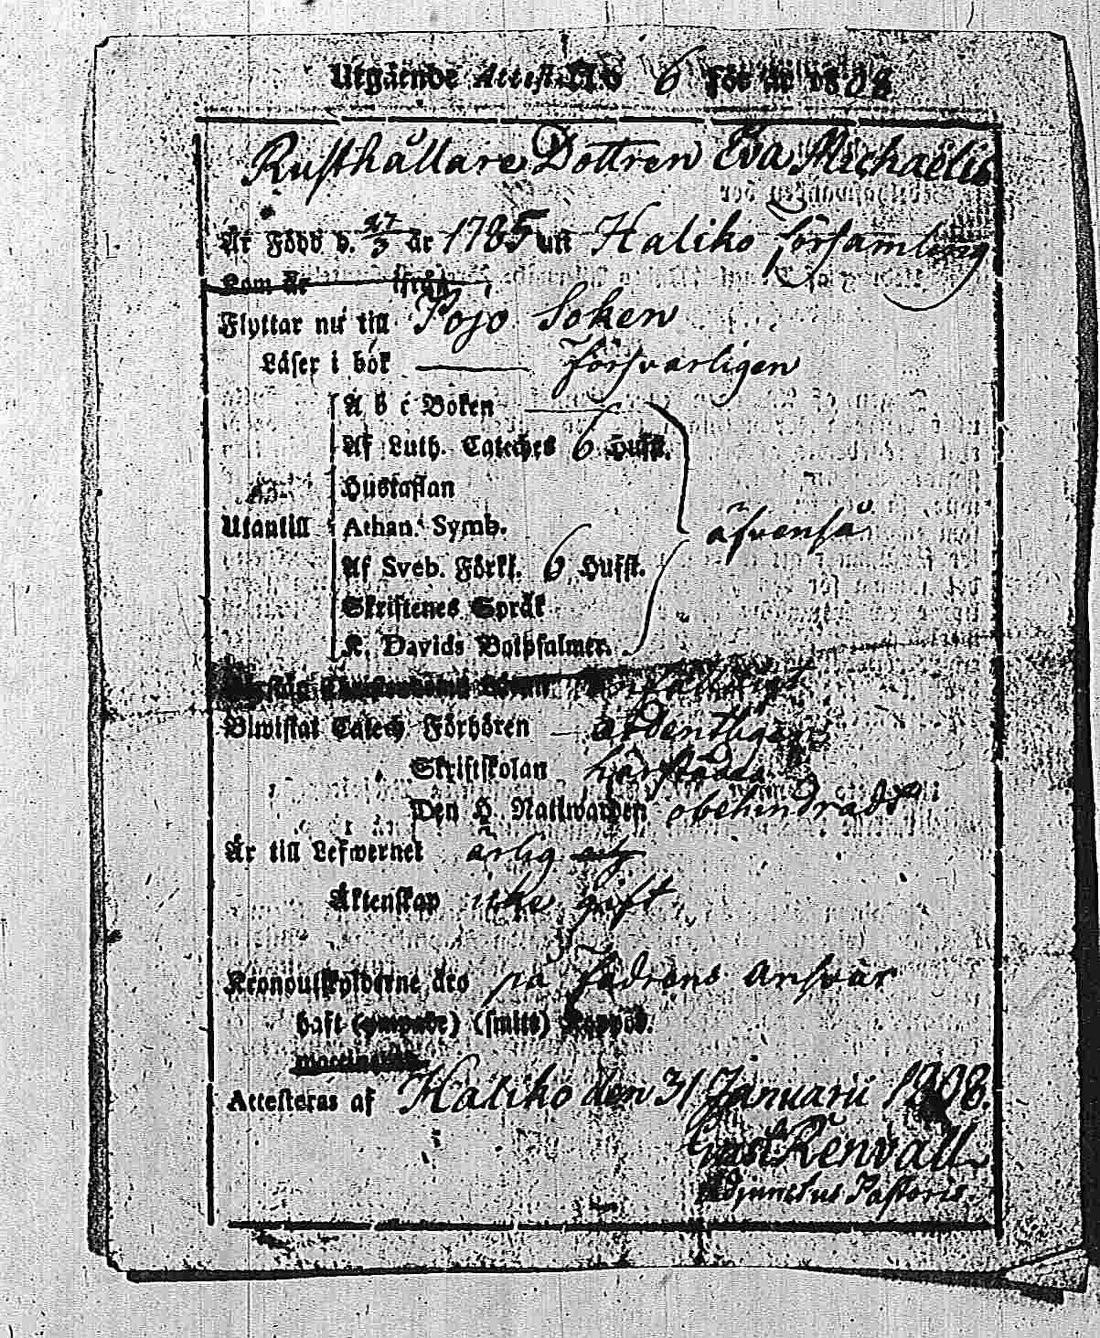 Utgående Attest N:o 6 för år 1808
Rusthållare Dottren Eva Michaëlis
Är Född d. 27/3 år 1785 uti Haliko församling
Kom år ifrån
Flyttar nu till Pojo Soken
Läser i bok försvarligen
A b c Boken
Af Luth. Cateches 6 Hufst.
Hustaflan
Utantill Athan. Symb. äfvenså
Af Sveb. Förkl. 6 Hufst.
Skriftenes Språk
K. Davids Botpsalmer.
Biwistat Catech Förhören ordentligen
Skriftskolan härstädes
Den H. Nattwarden obehindradt
Är till Lefwernet ärlig
Äktenskap icke gift.
Kronoutskylderne äro på fadrens ansvar
haft (ympade) (smitt) Koppor.
Attesteras af Haliko den 31 Januarii 1808.
Gust Renvall
Adjunctus Pastoris.